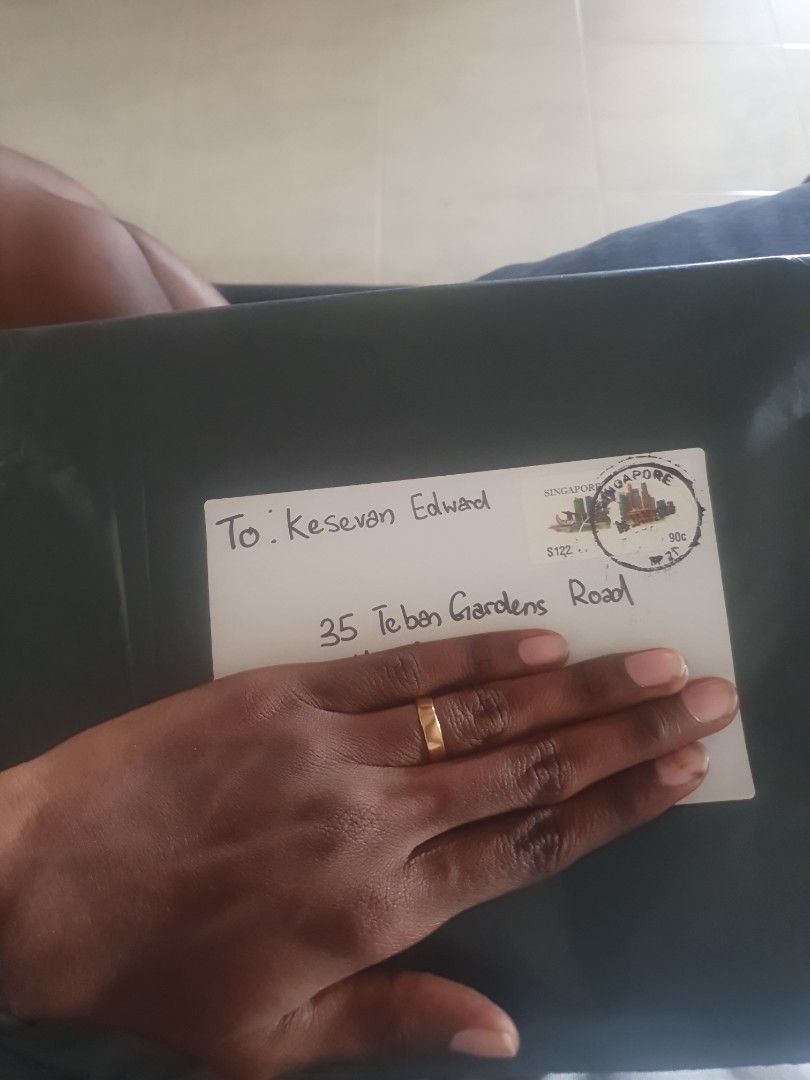 To: Kesevan Edward
SINGAPORE
SINGAPORE
S122
90c
35 Teban Gardens Road